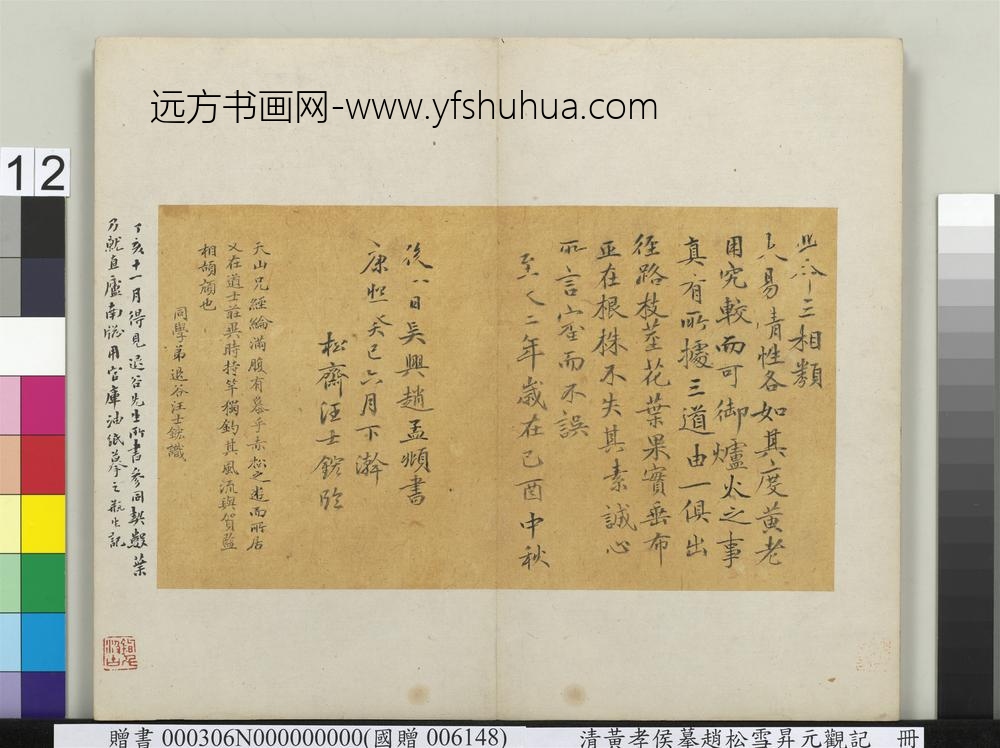 远方书画网-www.yfshuhua.com
12
此亦三相類
大易情性各如其度黃老
用究較而可御爐火之事
真有所據三道由一俱出
徑路枝莖花葉果實垂布
正在根株不失其素誠心
所言審而不誤
至元二年歲在己酉中秋
後八日吳興趙孟頫書
康熙癸巳六月下澣
松齋汪士鋐臨
天山兄經綸滿腹有慕乎赤松之遊而所居
又在道士莊異時持竿獨釣其風流與賀監
相頡頏也
同學弟退谷汪士鋐識
丁亥十一月得見退谷先生所書參同契數葉
乃就直廬南牕用官庫油紙摹之
贈書 000306N000000000(國贈 006148)
清黃孝侯摹趙松雪昇元觀記 冊